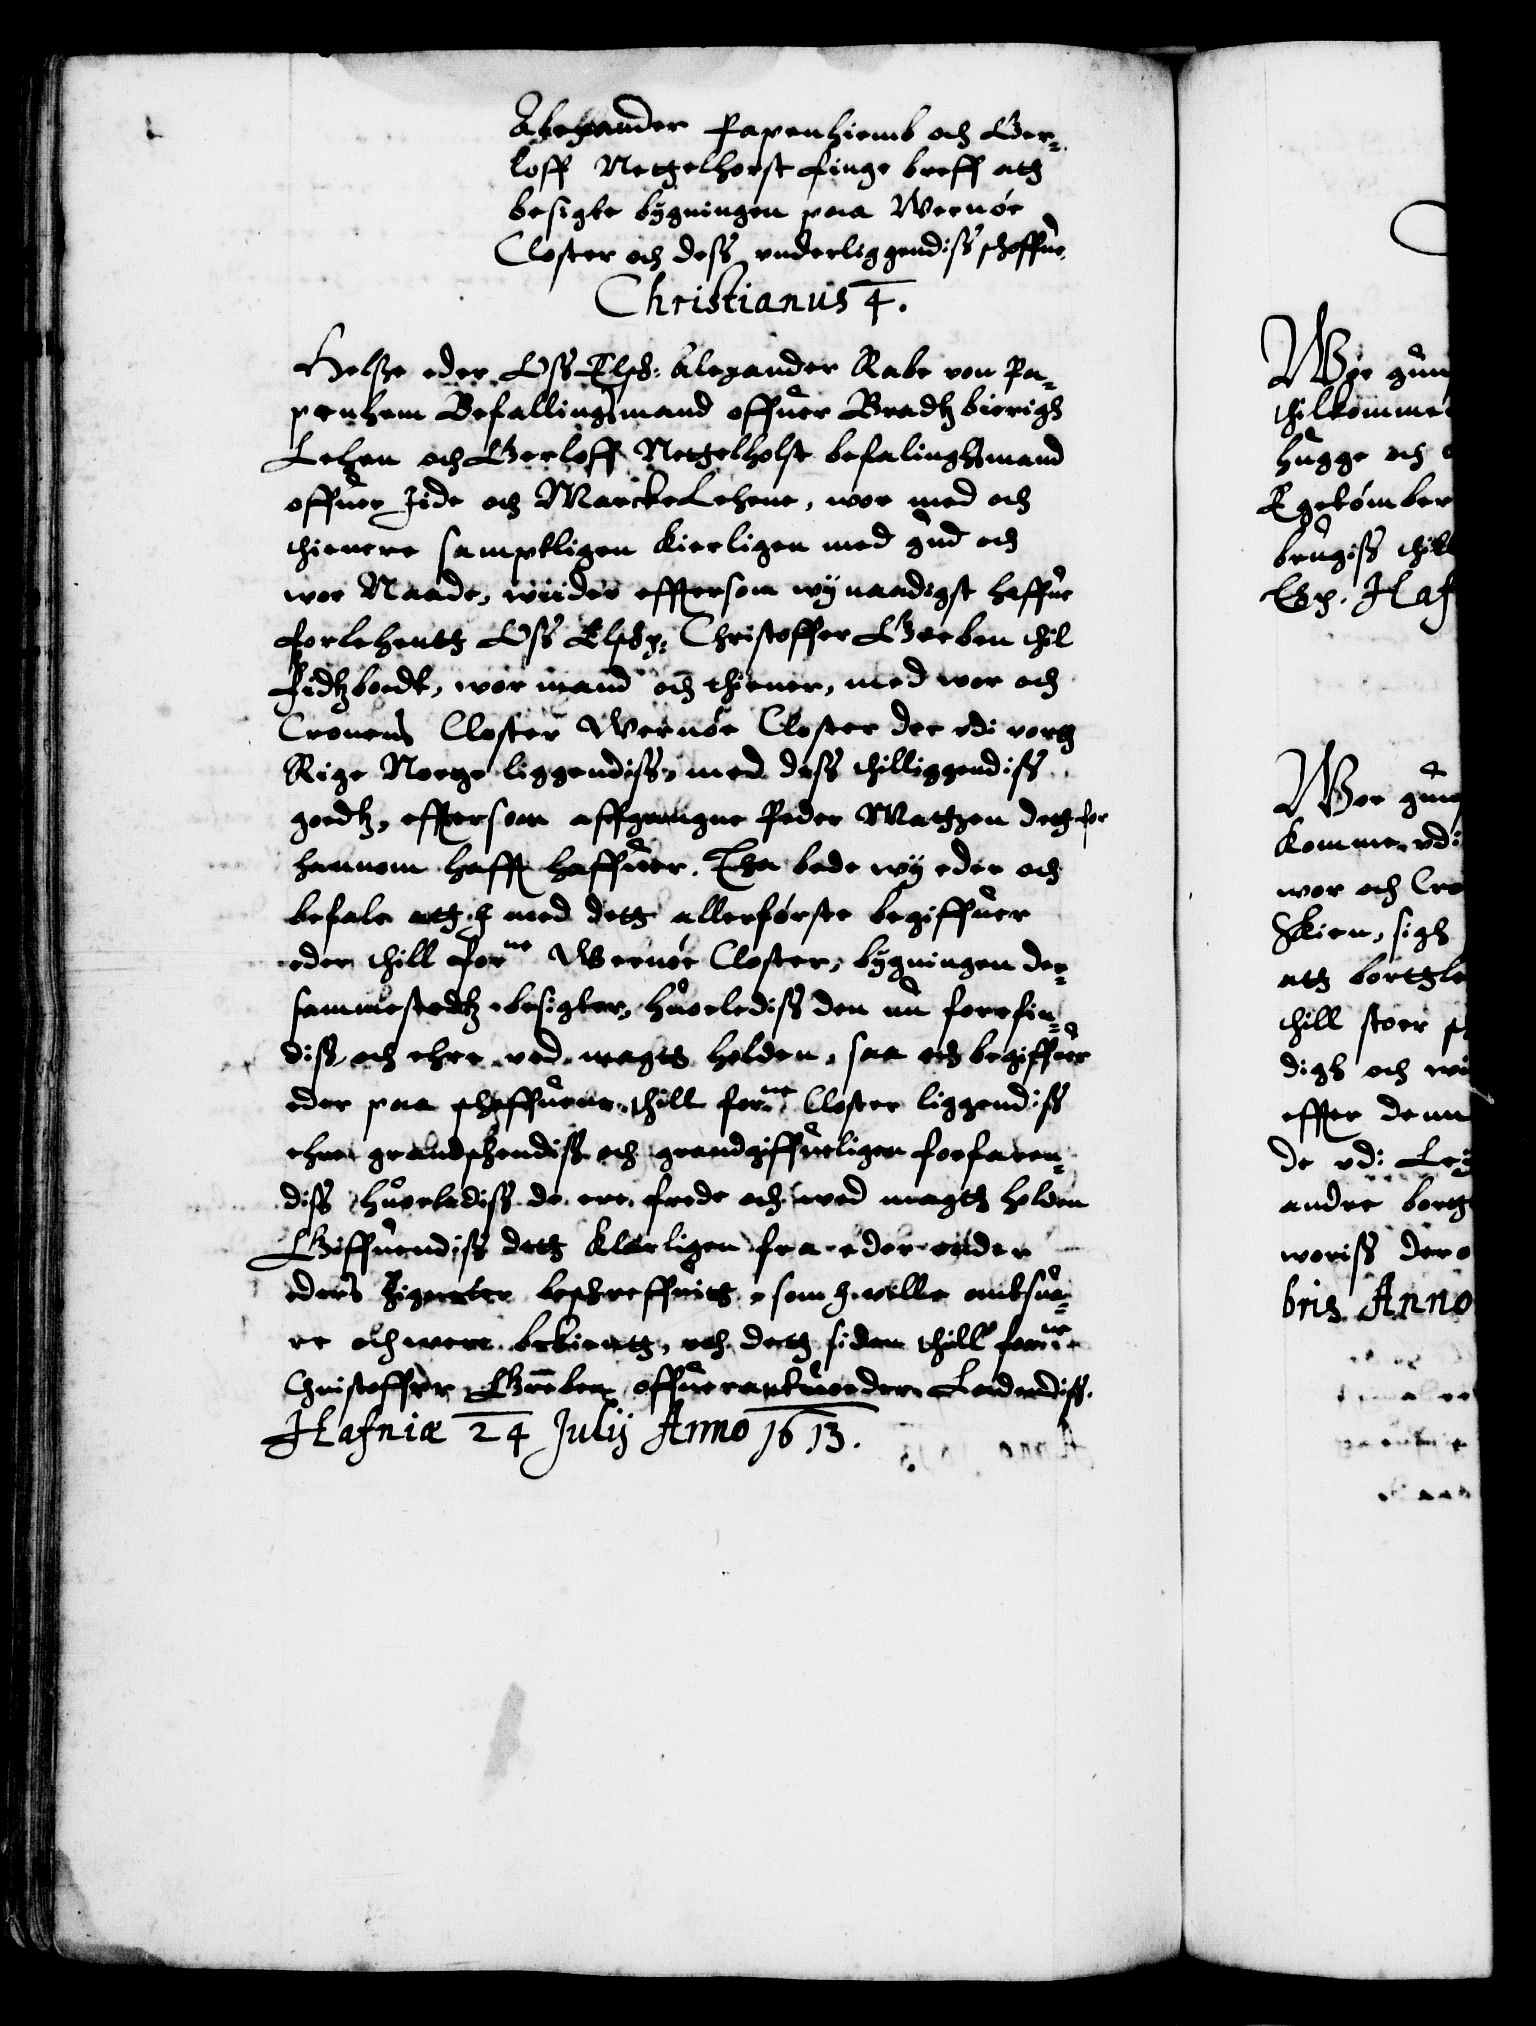 Alexander Papenhiemb och Ger¬
loff Netgelhorst finge breff att
besigte bygningen paa Wernøe
Closter och dess underliggendiss schoffue
Christianus 4.
Helsze eder Oss Elsch: Alexander Rabe von Pa¬
penhem Befallingsmand offuer Bradtzbierigh
Lehen och Gerloff Netgelholst befalinghsmand
offuer Jide och MarckeLehene, wor med och
thienere samptligen Kierligen med gud och
wor Naade, wiider effttersom wy naadigst haffue
forlehentt Oss Elsch: Christoffer Greben thil
fidtzboedt, wor mand och thiener, med wor och
Cronens Closter Wernøe Closter der udi vortt
Rige Norge liggendiss, med dess thilliggendiss
goedtz, effttersom affgangne Peder Matzen dett for
hannom hafft haffuer. Tha bede wy eder och
befale att I med dett allerførste begiffuer
eder thill forne Wernøe Closter, bygningen der¬
sammestedtz besigter, huorlediss den nu forefin¬
diss och ehre ved magtt holden, saa och begiffuer
eder paa schoffuene thill forne Closter liggendiss
ehre grandschendiss och grandgiffueligen forfaren¬
diss huorlediss de ere frede och wed magtt holden
Giffuendiss dett klarligen fra eder under
eders Zigneter beschreffuitt, som I wille antsua¬
re och were bekientt, och dett siden thill forne
Christoffer Grøben offuerantuorder Ladendiss.
Hafniæ 24 Julij Anno 1613.
Wor gun
thilkomme
hugge och
Egetømber
brugiss thill
Ex. Haf
Wor gun
komme udi
wor och Cro
Skien, sigh
att borttle
thill stoer
digh och wi
effter denn
de udi Lei
andre bortt
woriss der
bris Anno